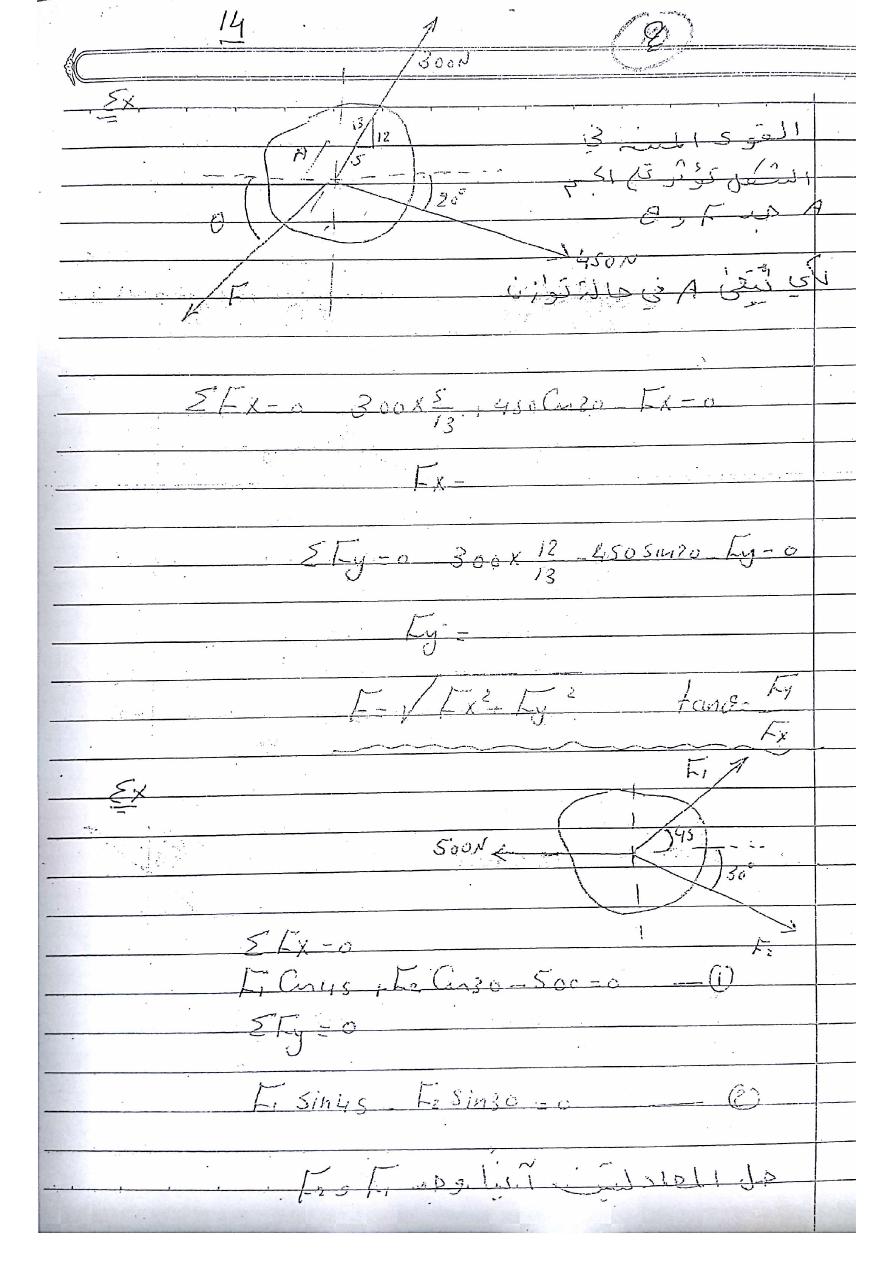 14
300N
Ex
13
12
5
A
θ
20°
450N
F
القوى المبينة في
الشكل تؤثر على الجسم
A جد F و θ
لكي تبقى A في حالة توازن
ΣFx=0 300×5/13 + 450Cos20 - Fx=0
Fx=
ΣFy=0 300×12/13 - 450sin20 - Fy=0
Fy=
F=√Fx²+Fy² tanθ=Fy/Fx
Ex
F1
500N
45
30°
F2
ΣFx=0
F1 Cos45 + F2 Cos30 - 500 = 0 — ①
ΣFy=0
F1 sin45 - F2 sin30 = 0 — ②
حل المعادلتين آنيا وجد F1 و F2